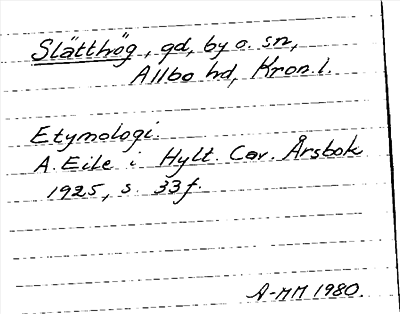 Slätthög, gd, by o. sn,
Allbo hd, Kron. l.
Etymologi:
A. Eile i Hylt. Cav. Årsbok
1925, s. 33 f.
A-MM 1980.